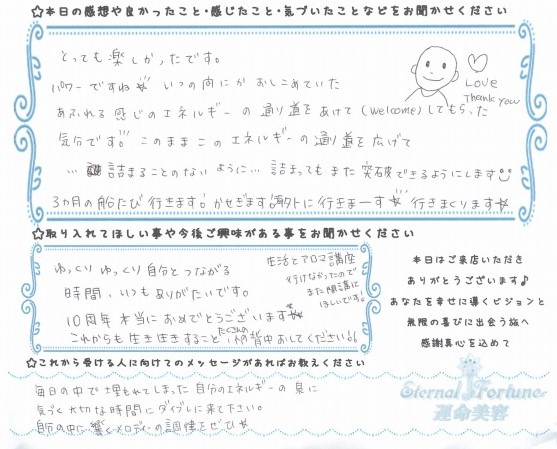 ☆本日の感想や良かったこと・感じたこと・気づいたことなどをお聞かせください
とっても楽しかったです。
パワーですね☆ いつの間にかおしこめていた
あふれる感じのエネルギーの通り道をあけて(welcome)してもらった
気分です!!! このままこのエネルギーの通り道を広げて
… 詰まることのないように… 詰まってもまた突破できるようにします
3ヵ月の船たび行きます! かせぎます! 海外に行きまーす☆ 行きまくります☆
♡ LOVE
Thank you
☆取り入れてほしい事や今後ご興味がある事をお聞かせください
ゆっくり ゆっくり 自分とつながる
時間、いつもありがたいです。
10周年本当におめでとうございます☆
これからも生き生きすること たくさんの 背中おしてください。
生活とアロマ講座
行けなかったので
また開講に
ほしいです!
本日はご来店いただき
ありがとうございます♪
あなたを幸せに導くビジョンと
無限の喜びに出会う旅へ
感謝真心を込めて
☆これから受ける人に向けてのメッセージがあればお教えください
毎日の中で埋もれてしまった自分のエネルギーの泉に
気づく大切な時間にダイブしに来て下さい。
自分の中に響くメロディーの調律をぜひ☆
Eternal Fortune
運命美容